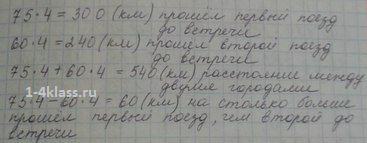 75·4 = 300 (км) прошёл первый поезд
до встречи
60·4 = 240 (км) прошёл второй поезд
до встречи
75·4 + 60·4 = 540 (км) расстояние между
двумя городами
75·4 - 60·4 = 60 (км) на столько больше
прошёл первый поезд, чем второй до
встречи
1-4klass.ru